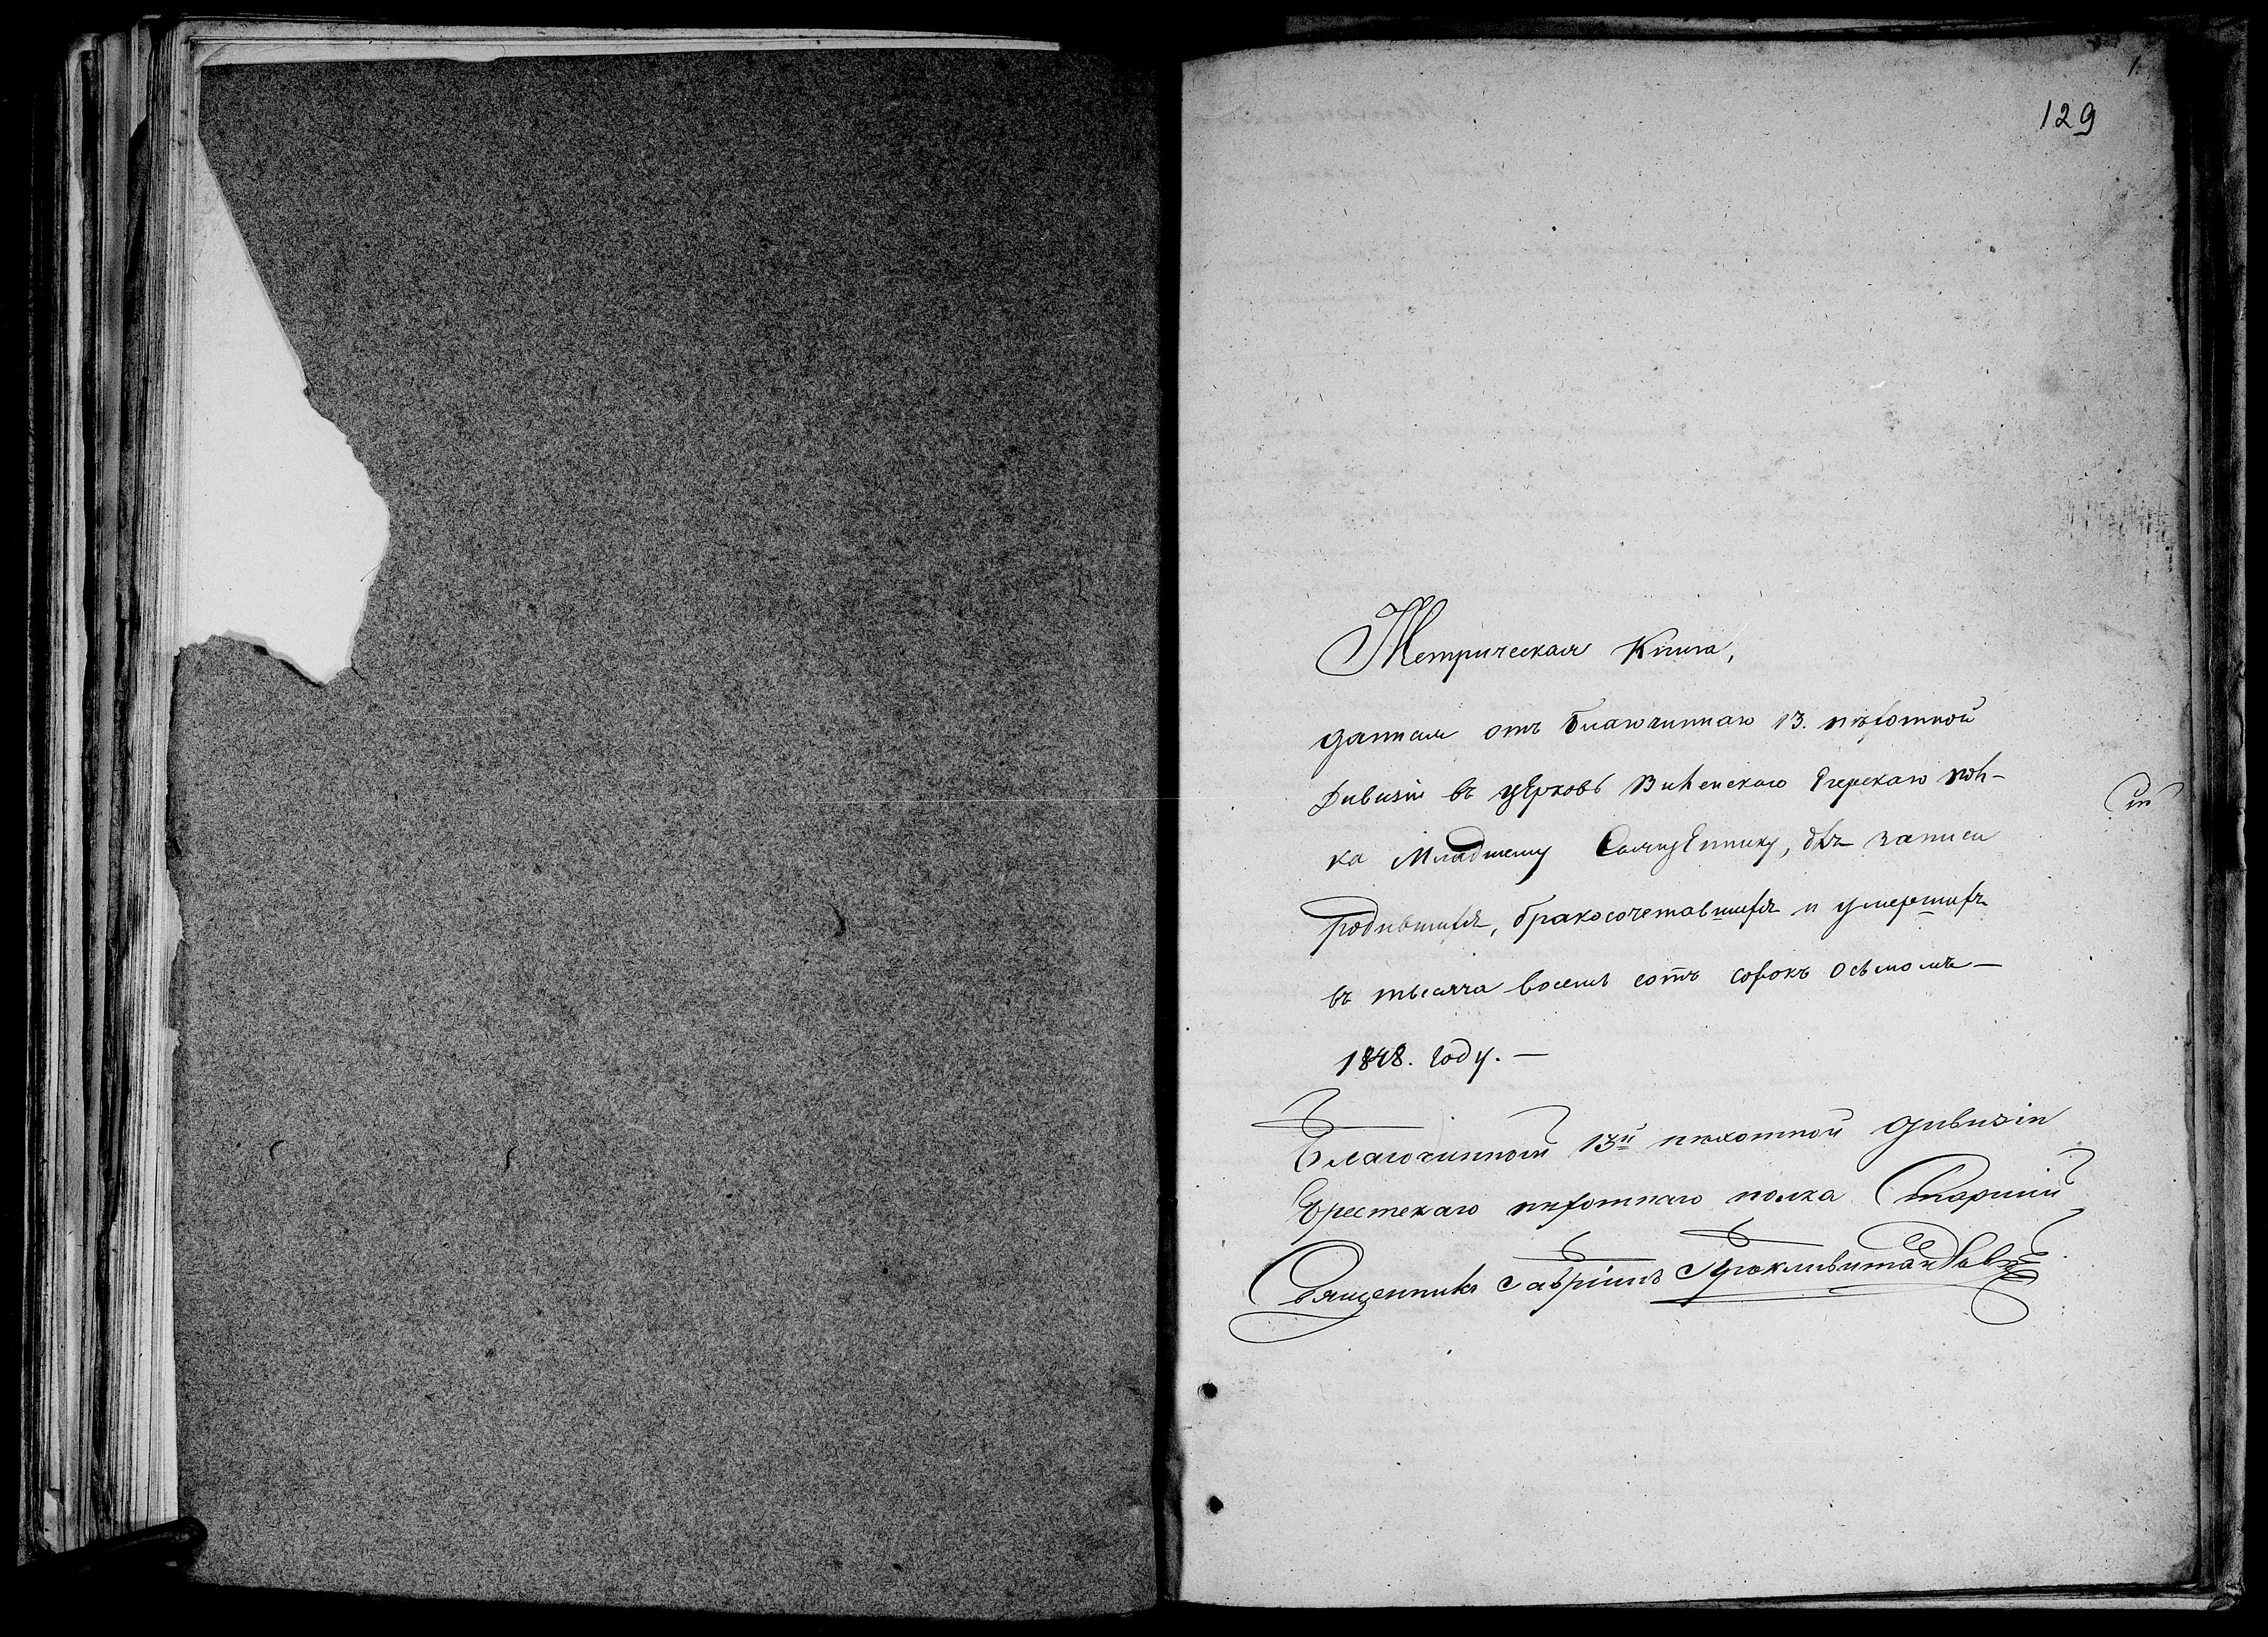 1.
129
Метрическая Книга,
данная отъ Благочиннаго 13. пѣхотной
Дивизіи въ церковь Виленскаго Егерскаго пол-
ка Младшему Священнику, для записи
родившихся, бракосочетавшихся и умершихъ
въ тысяча восемь сотъ сорокъ осьмомъ —
1848. году. —
Благочинной 13й пѣхотной дивизіи
Брестскаго пѣхотнаго полка Старшій
Священникъ Гавріилъ